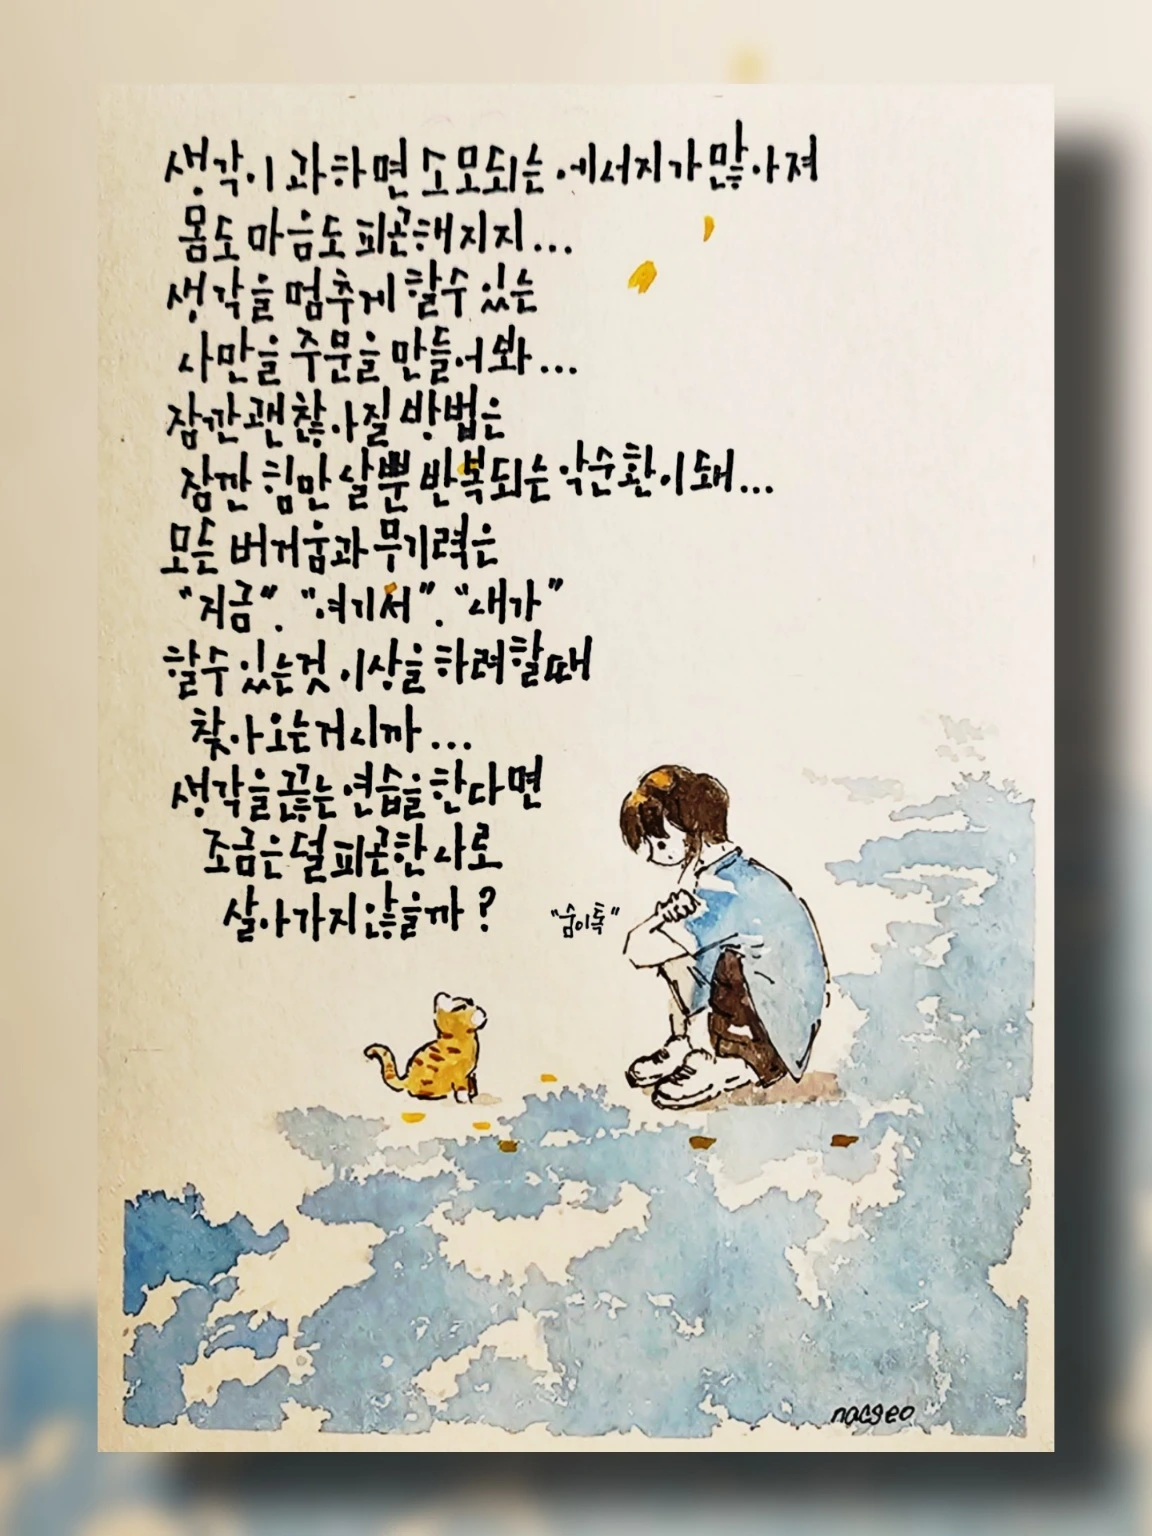 생각이 과하면 소모되는 에너지가 많아져
몸도 마음도 피곤해지지...
생각을 멈추게 할수 있는
나만을 주문을 만들어봐...
잠깐 괜찮아질 방법은
잠깐 힘만 날뿐 반복되는 악순환이 돼...
모든 버거움과 무기력은
"지금". "여기서". "내가"
할수 있는것 이상을 하려할때
찾아오는거니까...
생각을 끊는 연습을 한다면
조금은 덜 피곤한 나로
살아가지 않을까?
"숨이톡"
nacseo